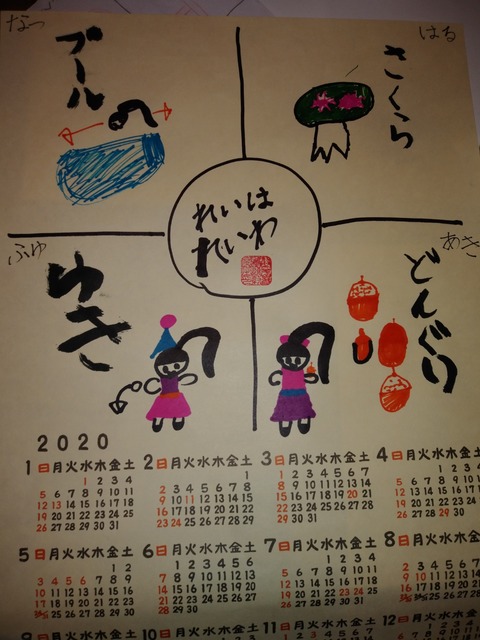 なつ
はる
プール
さくら
れいは
れいわ
ふゆ
あき
ゆき
どんぐり
2020
1 日月火水木金土
1 2 3 4
5 6 7 8 9 10 11
12 13 14 15 16 17 18
19 20 21 22 23 24 25
26 27 28 29 30 31
2 日月火水木金土
1
2 3 4 5 6 7 8
9 10 11 12 13 14 15
16 17 18 19 20 21 22
23 24 25 26 27 28 29
3 日月火水木金土
1 2 3 4 5 6 7
8 9 10 11 12 13 14
15 16 17 18 19 20 21
22 23 24 25 26 27 28
29 30 31
4 日月火水木金
1 2 3
5 6 7 8 9 10
12 13 14 15 16 17
19 20 21 22 23 24
26 27 28 29 30
5 日月火水木金土
1 2
3 4 5 6 7 8 9
10 11 12 13 14 15 16
17 18 19 20 21 22 23
24/31 25 26 27 28 29 30
6 日月火水木金土
1 2 3 4 5 6
7 8 9 10 11 12 13
14 15 16 17 18 19 20
21 22 23 24 25 26 27
28 29 30
7 日月火水木金土
1 2 3 4
5 6 7 8 9 10 11
12 13 14 15 16 17 18
19 20 21 22 23 24 25
26 27 28 29 30 31
8 日月火水木金
2 3 4 5 6 7
9 10 11 12 13 14
16 17 18 19 20 21
23/30 24/31 25 26 27 28
9 日月火水木金土
10 日月火水木金土
11 日月火水木金土
12 日月火水木金